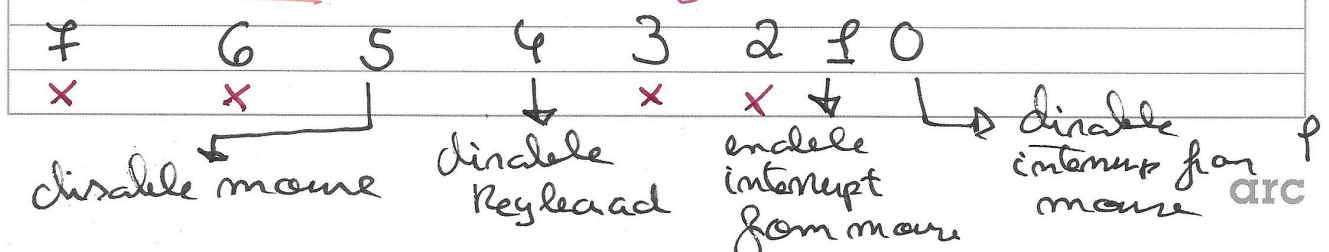 7 6 5 4 3 2 1 0
x x x x
disable mouse
disable
Keyboard
enable
interrupt
from mouse
disable
interrup from
mouse
arc